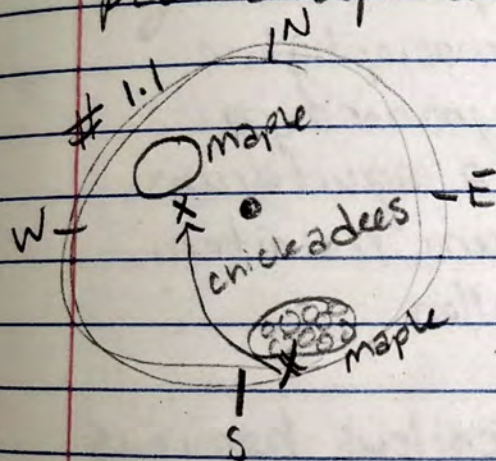 N
# 1.1
maple
E
W
x
chickadees
X
maple
S